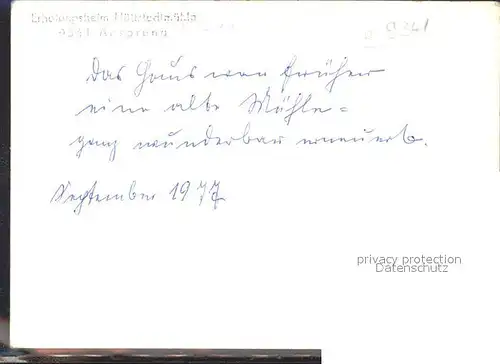 Erholungsheim
9341
Das Haus war früher
eine alte Mühle =
ganz wunderbar erneuert.
September 1977
privacy protection
Datenschutz